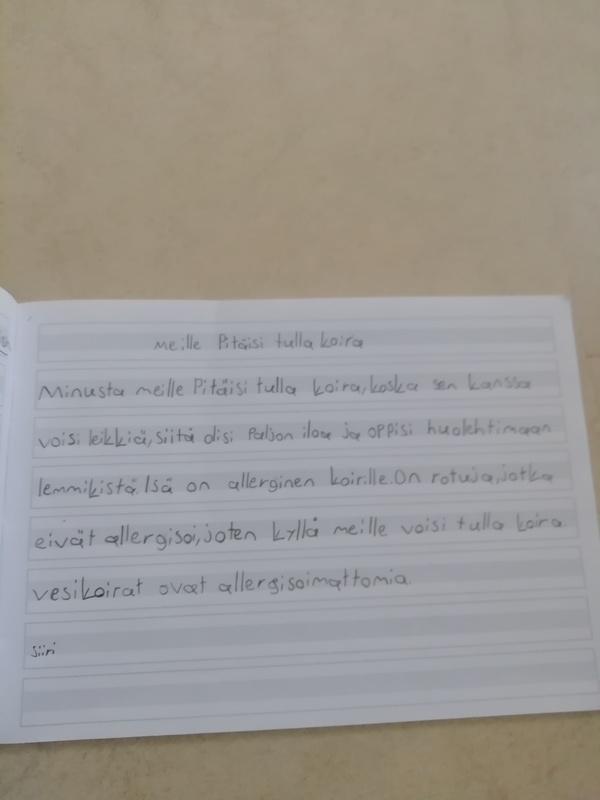 meille Pitäisi tulla koira
Minusta meille Pitäisi tulla koira, koska sen kanssa
voisi leikkiä, siitä olisi Paljon iloa ja oppisi huolehtimaan
lemmikistä. Isä on allerginen koirille. On rotuja, jotka
eivät allergisoi, joten kyllä meille voisi tulla koira.
vesikoirat ovat allergisoimattomia.
siiri